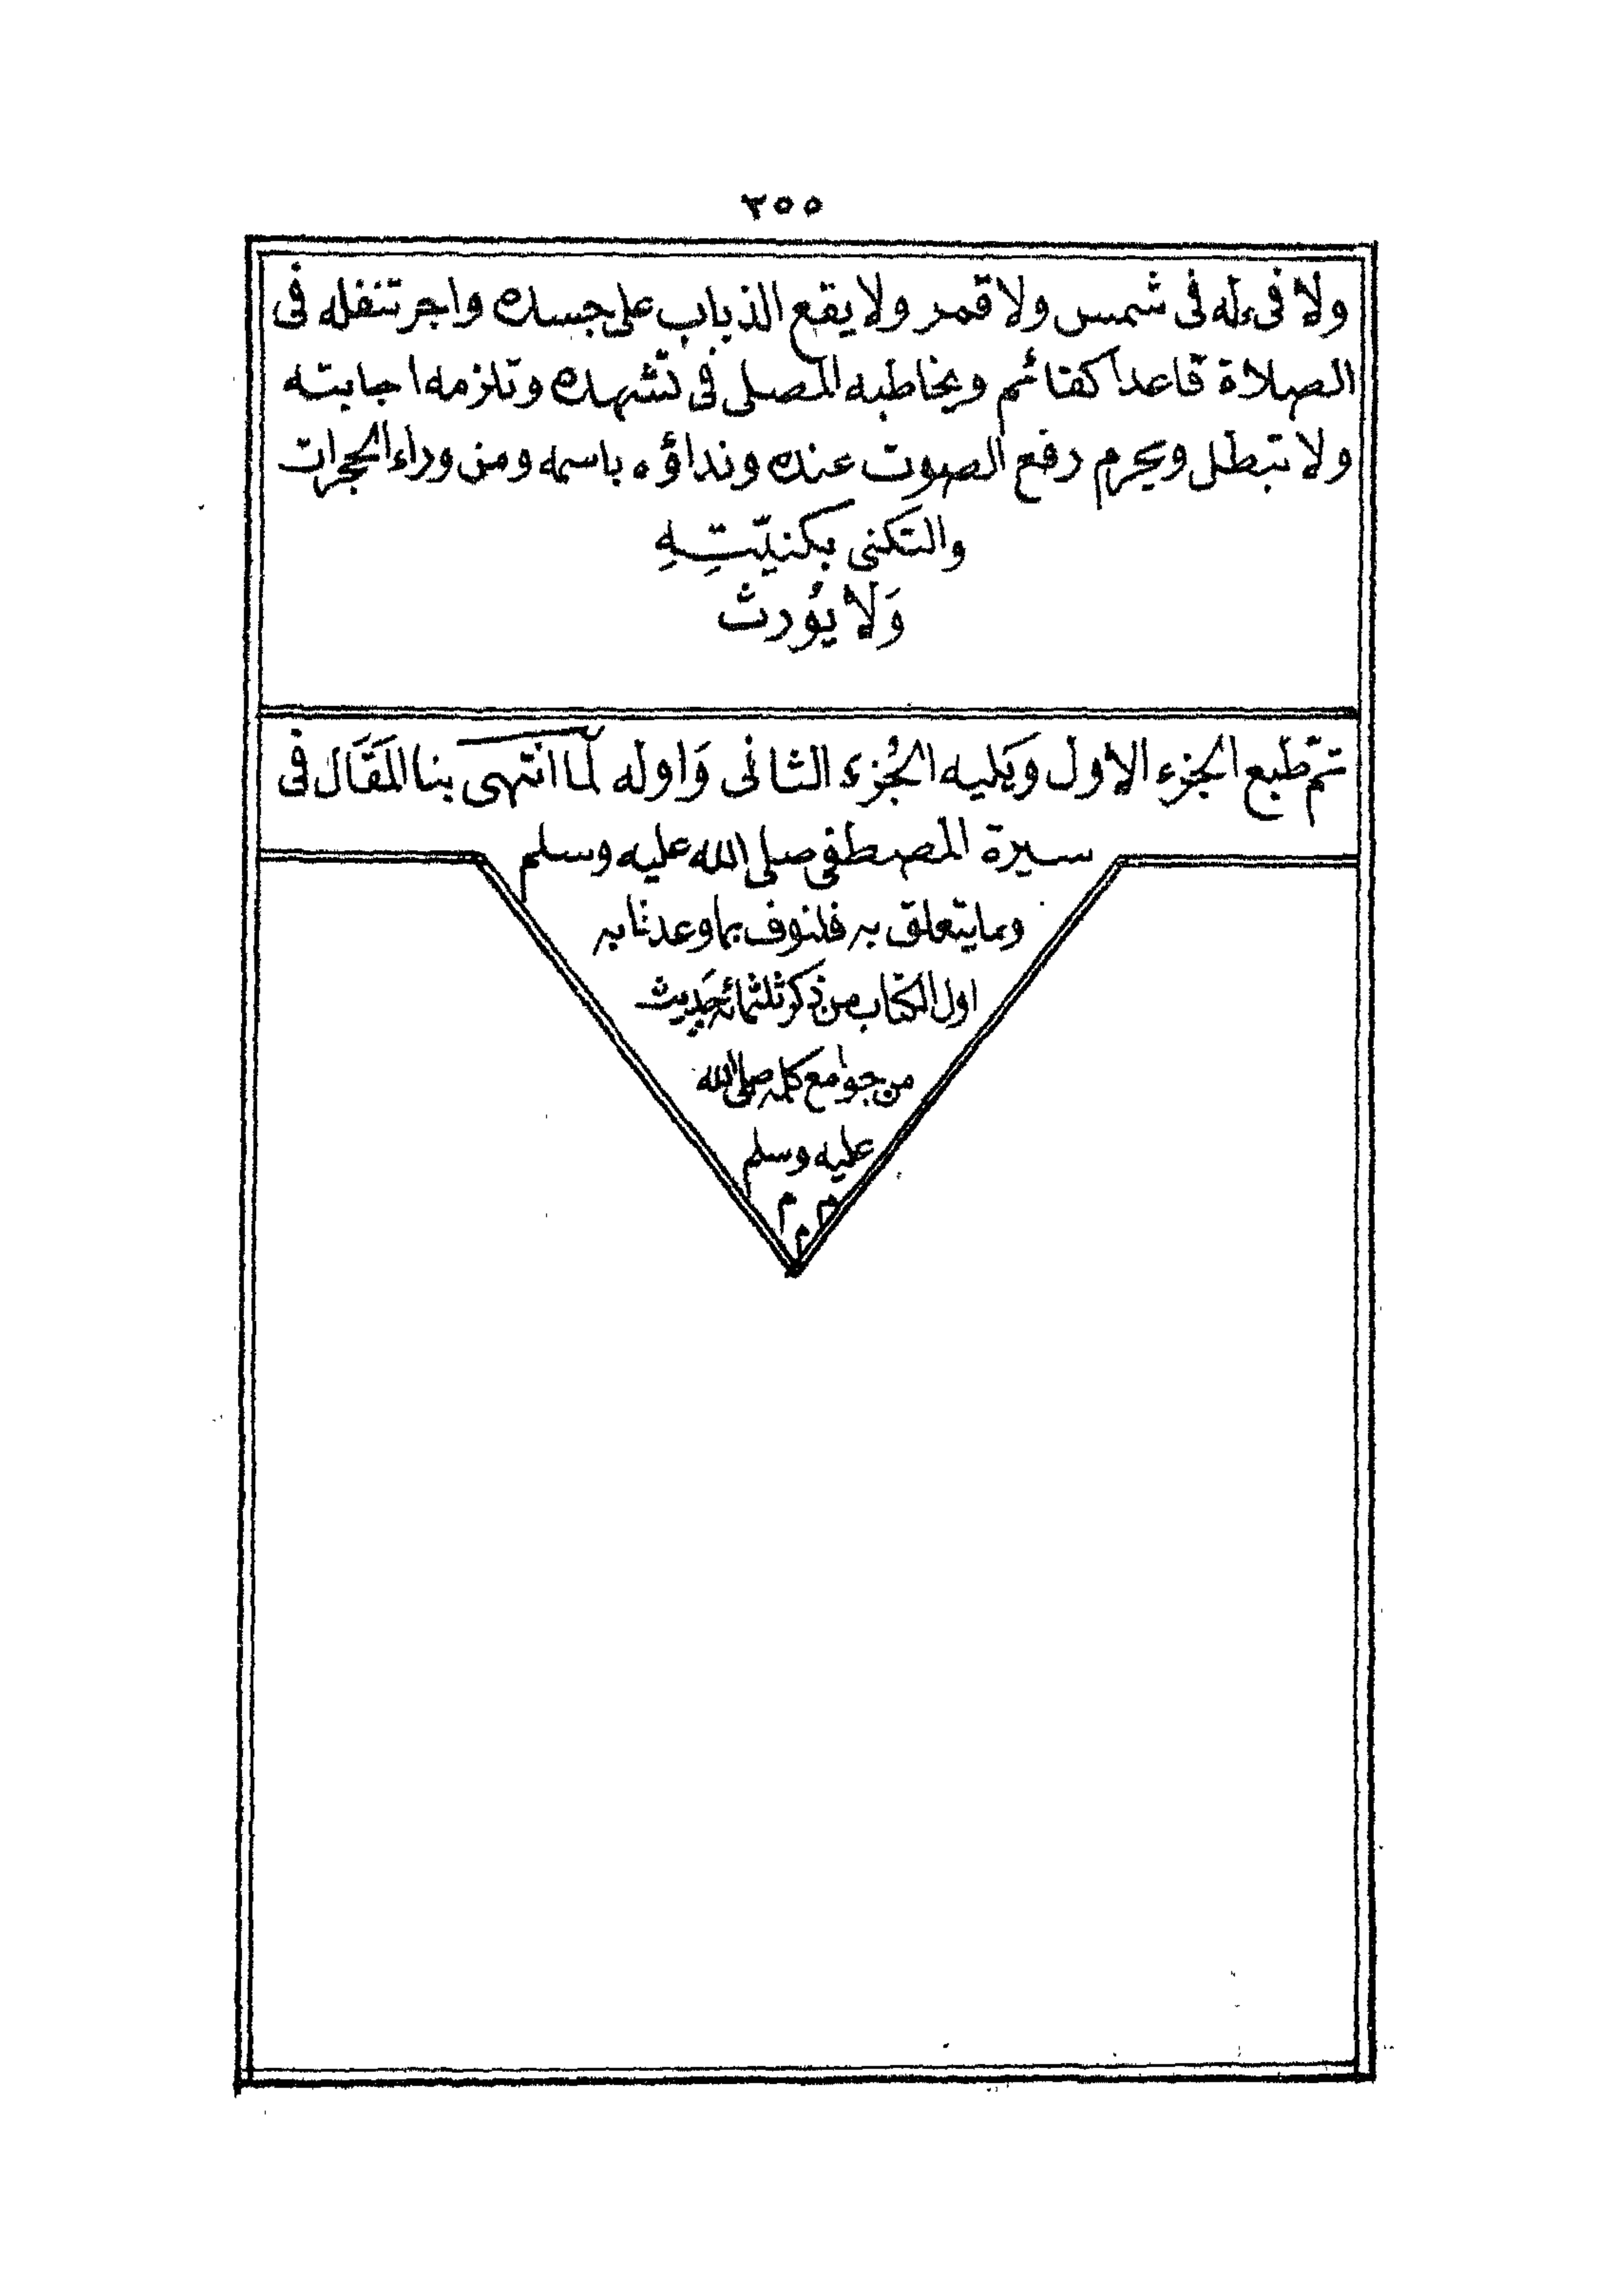 ٣٥٥
ولا فىء له فى شمس ولا قمر ولا يقع الذباب على جسده واجر تنفله فى
الصلاة قاعدا كقائم ويخاطبه المصلى فى تشهده وتلزمه اجابته
ولا تبطل ويحرم رفع الصوت عنده ونداؤه باسمه ومن وراء الحجرات
والتكنى بكنيّتِهِ
وَلا يُورث
تمّ طبع الجزء الاول وَيَليه الجُزء الثانى وَاوله لمّا انتهى بنا المَقَال فى
سيرة المصطفى صلى الله عليه وسلم
وما يتعلق به فلنوف بما وعدنا به
اول الكتاب من ذكر ثلثمائة حَديث
من جوامع كلمه صلى الله
عليه وسلم
م م
م